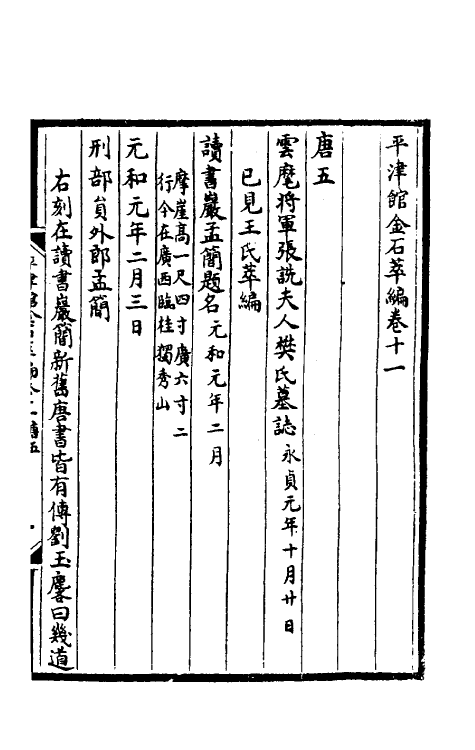 平津館金石萃編卷十一
唐五
雲麾將軍張詵夫人樊氏墓誌永貞元年十月廿日
已見王氏萃編
讀書巖孟簡題名元和元年二月
摩崖高一尺四寸廣六寸二
行今在廣西臨桂獨秀山
元和元年二月三日
刑部員外郎孟簡
右刻在讀書巖簡新舊唐書皆有傳劉玉麐曰幾道